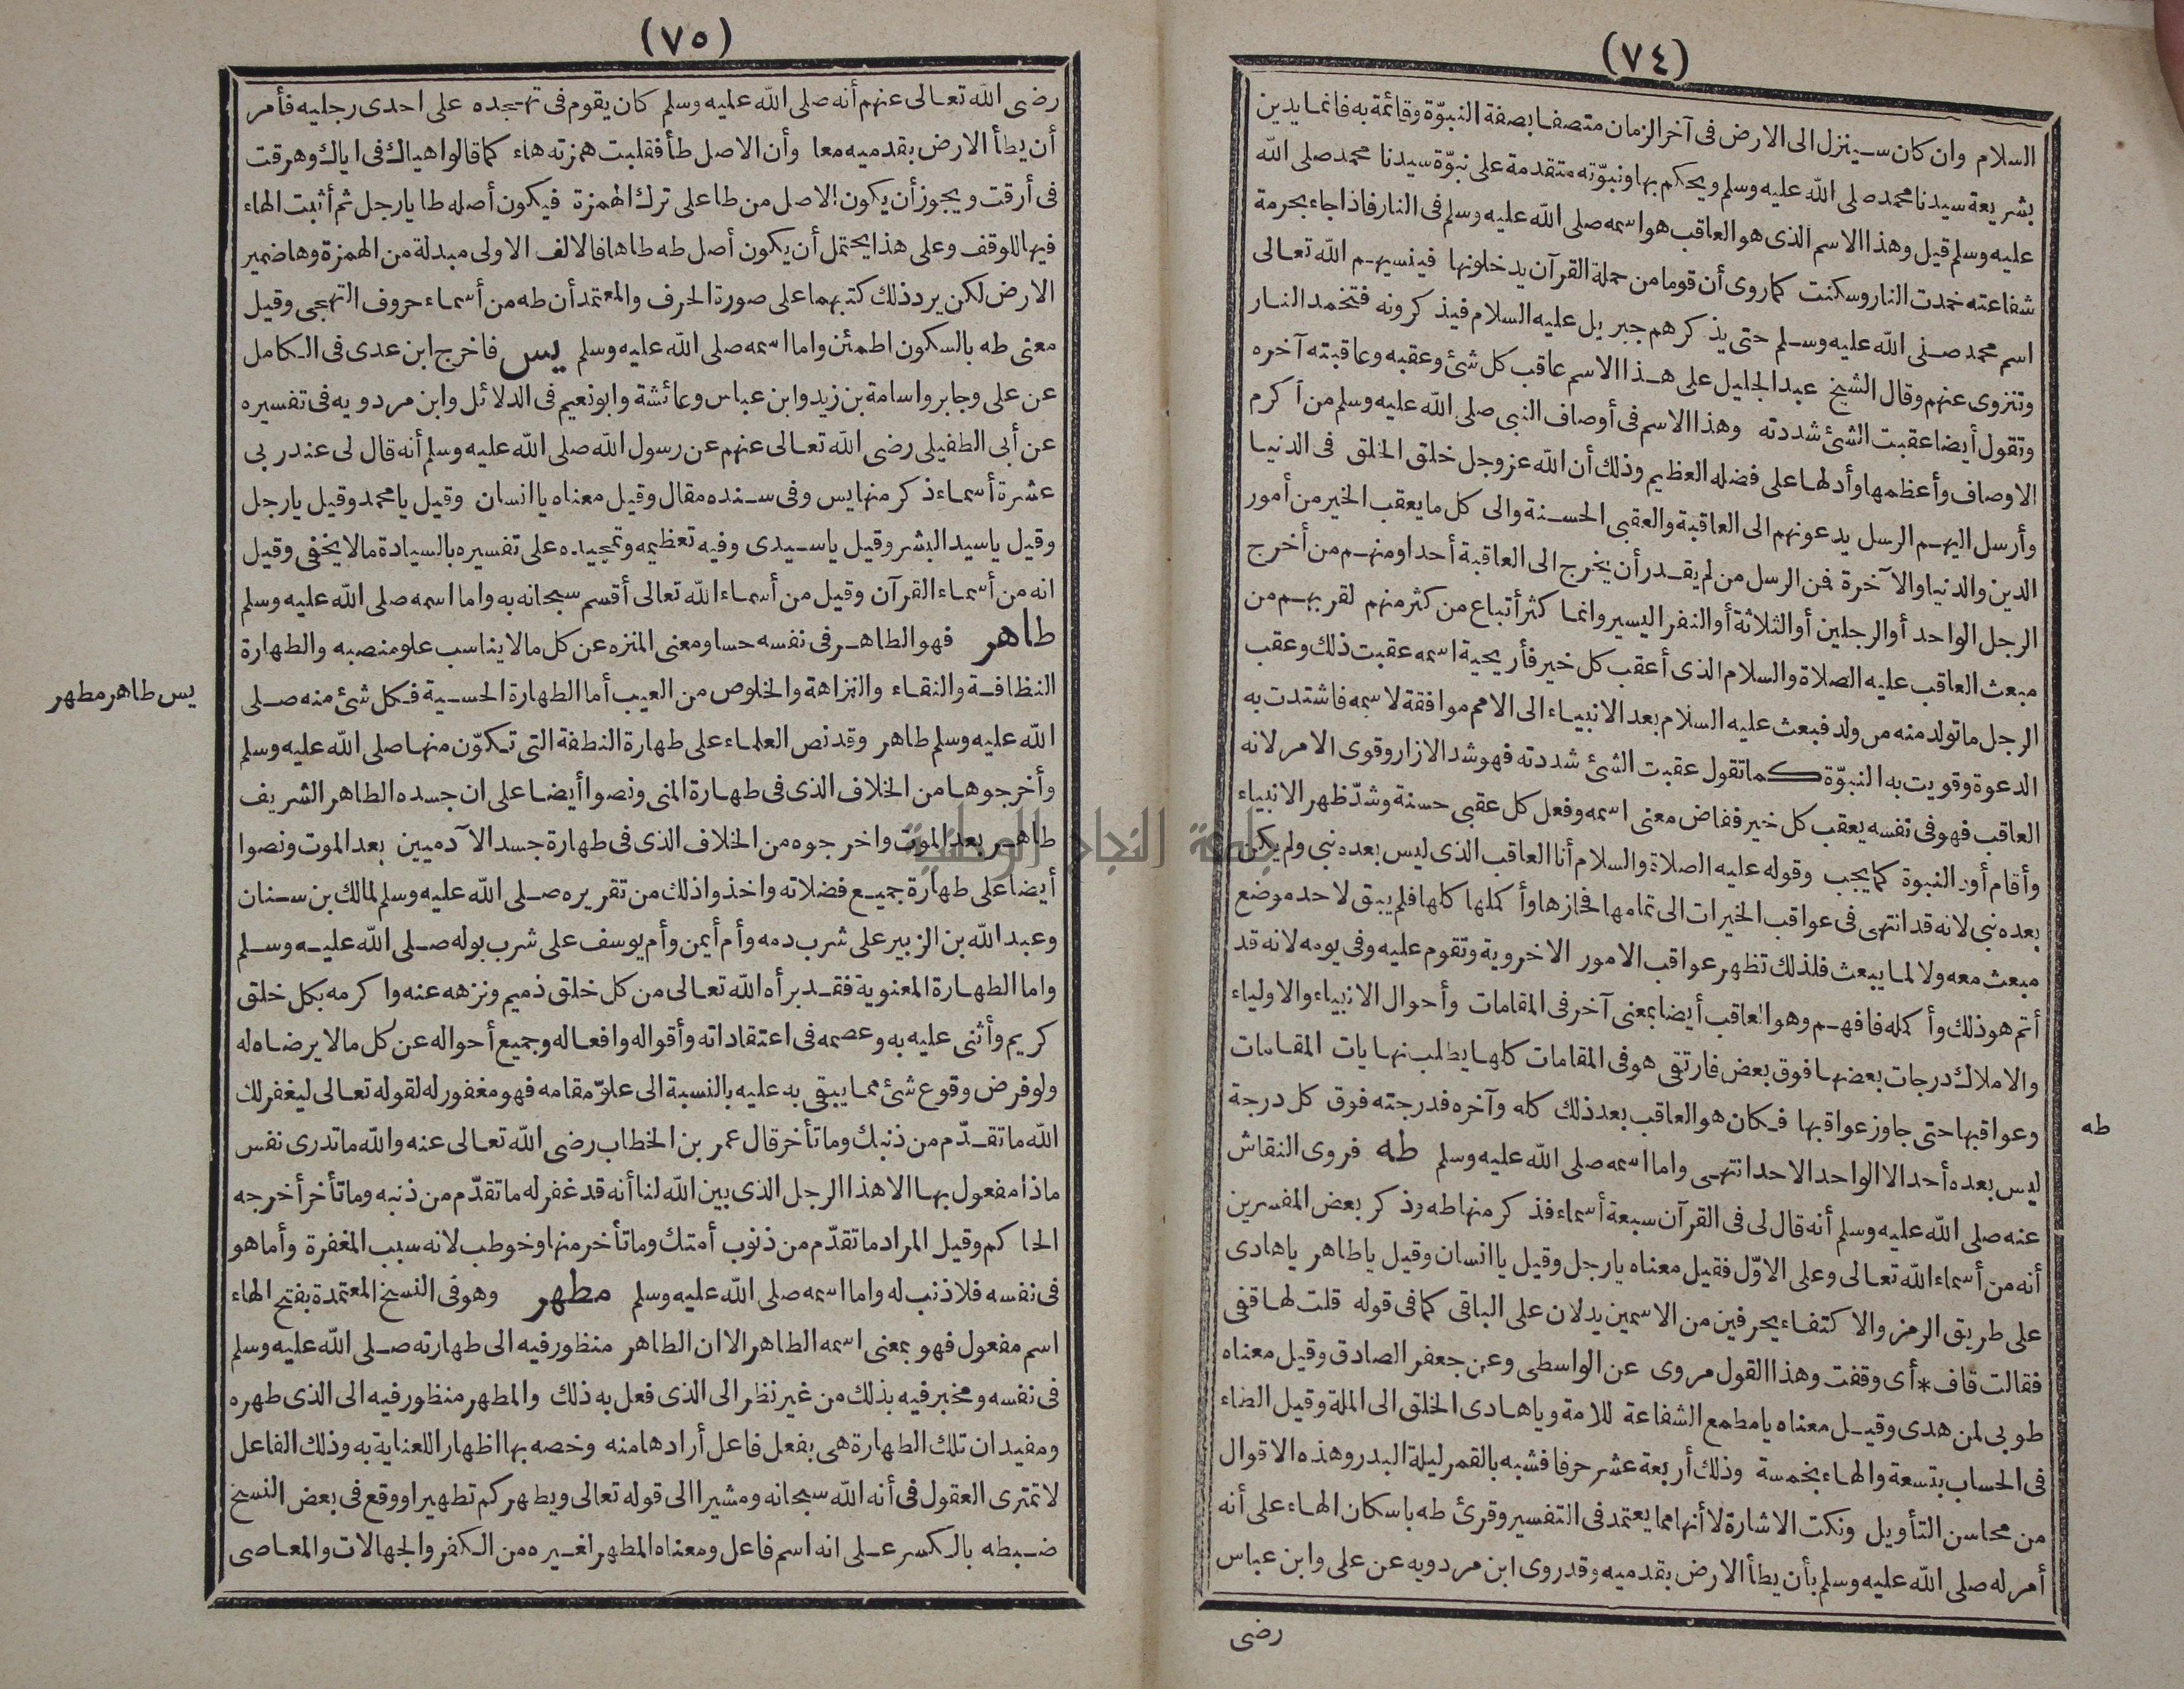 (٧٤)
السلام وان كان سينزل الى الارض فى آخر الزمان متصفا بصفة النبوّة وقائمة به فانما يدين
بشريعة سيدنا محمد صلى الله عليه وسلم ويحكم بها ونبوّته متقدمة على نبوّة سيدنا محمد صلى الله
عليه وسلم قيل وهذا الاسم الذى هو العاقب هو اسمه صلى الله عليه وسلم فى النار فاذا جاء بحرمة
شفاعته خمدت النار وسكنت كما روى أن قوما من حملة القرآن يدخلونها فينسيهم الله تعالى
اسم محمد صلى الله عليه وسلم حتى يذكرهم جبريل عليه السلام فيذكرونه فتخمد النار
وتنزوى عنهم وقال الشيخ عبد الجليل على هذا الاسم عاقب كل شئ وعقبه وعاقبته آخره
وتقول أيضا عقبت الشئ شددته وهذا الاسم فى أوصاف النبى صلى الله عليه وسلم من أكرم
الاوصاف وأعظمها وأدلها على فضله العظيم وذلك أن الله عز وجل خلق الخلق فى الدنيا
وأرسل اليهم الرسل يدعونهم الى العاقبة والعقبى الحسنة والى كل ما يعقب الخير من أمور
الدين والدنيا والآخرة فمن الرسل من لم يقدر أن يخرج الى العاقبة أحدا ومنهم من أخرج
الرجل الواحد أو الرجلين أو الثلاثة أو النفر اليسير وانما كثر أتباع من كثر منهم لقربهم من
مبعث العاقب عليه الصلاة والسلام الذى أعقب كل خير فأريحية اسمه عقبت ذلك وعقب
الرجل ما تولد منه من ولد فبعث عليه السلام بعد الانبياء الى الامم موافقة لاسمه فاشتدت به
الدعوة وقويت به النبوّة كما تقول عقبت الشئ شددته فهو شد الازار وقوى الامر لانه
العاقب فهو فى نفسه يعقب كل خير ففاض معنى اسمه وفعل كل عقبى حسنة وشدّ ظهر الانبياء
وأقام أود النبوة كما يجب وقوله عليه الصلاة والسلام أنا العاقب الذى ليس بعده نبى ولم يكن
بعده نبى لانه قد انتهى فى عواقب الخيرات الى تمامها فحازها وأكملها كلها فلم يبق لاحد موضع
مبعث معه ولا لما يبعث فلذلك تظهر عواقب الامور الاخروية وتقوم عليه وفى يومه لانه قد
أتم هو ذلك وأكمله فافهم وهو العاقب أيضا بمعنى آخر فى المقامات وأحوال الانبياء والاولياء
والاملاك درجات بعضها فوق بعض فارتقى هو فى المقامات كلها يطلب نهايات المقامات
وعواقبها حتى جاوز عواقبها فكان هو العاقب بعد ذلك كله وآخره فدرجته فوق كل درجة
ليس بعده أحد الا الواحد الاحد انتهى واما اسمه صلى الله عليه وسلم طه فروى النقاش
عنه صلى الله عليه وسلم أنه قال لى فى القرآن سبعة أسماء فذكر منها طه وذكر بعض المفسرين
أنه من أسماء الله تعالى وعلى الاوّل فقيل معناه يا رجل وقيل يا انسان وقيل يا طاهر يا هادى
على طريق الرمز والاكتفاء بحرفين من الاسمين يدلان على الباقى كما فى قوله قلت لها قفى
فقالت قاف * أى وقفت وهذا القول مروى عن الواسطى وعن جعفر الصادق وقيل معناه
طوبى لمن هدى وقيل معناه يا مطمع الشفاعة للامة ويا هادى الخلق الى الملة وقيل الطاء
فى الحساب بتسعة والهاء بخمسة وذلك أربعة عشر حرفا فشبه بالقمر ليلة البدر وهذه الاقوال
من محاسن التأويل ونكت الاشارة لا أنها مما يعتمد فى التفسير وقرئ طه باسكان الهاء على أنه
أمر له صلى الله عليه وسلم بأن يطأ الارض بقدميه وقد روى ابن مردويه عن على وابن عباس
رضى
طه
(٧٥)
رضى الله تعالى عنهم أنه صلى الله عليه وسلم كان يقوم فى تهجده على احدى رجليه فأمر
أن يطأ الارض بقدميه معا وأن الاصل طأ فقلبت همزته هاء كما قالوا هياك فى اياك وهرقت
فى أرقت ويجوز أن يكون الاصل من طا على ترك الهمزة فيكون أصله طا يا رجل ثم أثبت الهاء
فيها للوقف وعلى هذا يحتمل أن يكون أصل طه طاها فالالف الاولى مبدلة من الهمزة وها ضمير
الارض لكن يرد ذلك كتبهما على صورة الحرف والمعتمد أن طه من أسماء حروف التهجى وقيل
معنى طه بالسكون اطمئن واما اسمه صلى الله عليه وسلم يس فاخرج ابن عدى فى الكامل
عن على وجابر واسامة بن زيد وابن عباس وعائشة وابو نعيم فى الدلائل وابن مردويه فى تفسيره
عن أبى الطفيلى رضى الله تعالى عنهم عن رسول الله صلى الله عليه وسلم أنه قال لى عند ربى
عشرة أسماء ذكر منها يس وفى سنده مقال وقيل معناه يا انسان وقيل يا محمد وقيل يا رجل
وقيل يا سيد البشر وقيل يا سيدى وفيه تعظيمه وتمجيده على تفسيره بالسيادة مالا يخفى وقيل
انه من أسماء القرآن وقيل من أسماء الله تعالى أقسم سبحانه به واما اسمه صلى الله عليه وسلم
طاهر فهو الطاهر فى نفسه حسا ومعنى المنزه عن كل مالا يناسب علو منصبه والطهارة
النظافة والنقاء والنزاهة والخلوص من العيب أما الطهارة الحسية فكل شئ منه صلى
الله عليه وسلم طاهر وقد نص العلماء على طهارة النطفة التى تكوّن منها صلى الله عليه وسلم
وأخرجوها من الخلاف الذى فى طهارة المنى ونصوا أيضا على ان جسده الطاهر الشريف
طاهر بعد الموت واخرجوه من الخلاف الذى فى طهارة جسد الآدميين بعد الموت ونصوا
أيضا على طهارة جميع فضلاته واخذوا ذلك من تقريره صلى الله عليه وسلم لمالك بن سنان
وعبد الله بن الزبير على شرب دمه وأم أيمن وأم يوسف على شرب بوله صلى الله عليه وسلم
واما الطهارة المعنوية فقد برأه الله تعالى من كل خلق ذميم ونزهه عنه واكرمه بكل خلق
كريم وأثنى عليه به وعصمه فى اعتقاداته وأقواله وافعاله وجميع أحواله عن كل مالا يرضاه له
ولو فرض وقوع شئ مما يبقى به عليه بالنسبة الى علوّ مقامه فهو مغفور له لقوله تعالى ليغفر لك
الله ما تقدّم من ذنبك وما تأخر قال عمر بن الخطاب رضى الله تعالى عنه والله ما تدرى نفس
ماذا مفعول بها الا هذا الرجل الذى بين الله لنا أنه قد غفر له ما تقدّم من ذنبه وما تأخر أخرجه
الحاكم وقيل المراد ما تقدّم من ذنوب أمتك وما تأخر منها وخوطب لانه سبب المغفرة وأما هو
فى نفسه فلا ذنب له واما اسمه صلى الله عليه وسلم مطهر وهو فى النسخ المعتمدة بفتح الهاء
اسم مفعول فهو بمعنى اسمه الطاهر الا ان الطاهر منظور فيه الى طهارته صلى الله عليه وسلم
فى نفسه ومخبر فيه بذلك من غير نظر الى الذى فعل به ذلك والمطهر منظور فيه الى الذى طهره
ومفيد ان تلك الطهارة هى بفعل فاعل أرادها منه وخصه بها اظهارا للعناية به وذلك الفاعل
لا تمترى العقول فى أنه الله سبحانه ومشيرا الى قوله تعالى ويطهركم تطهيرا ووقع فى بعض النسخ
ضبطه بالكسر على انه اسم فاعل ومعناه المطهر لغيره من الكفر والجهالات والمعاصى
يس طاهر مطهر
جامعة النجاح الوطنية